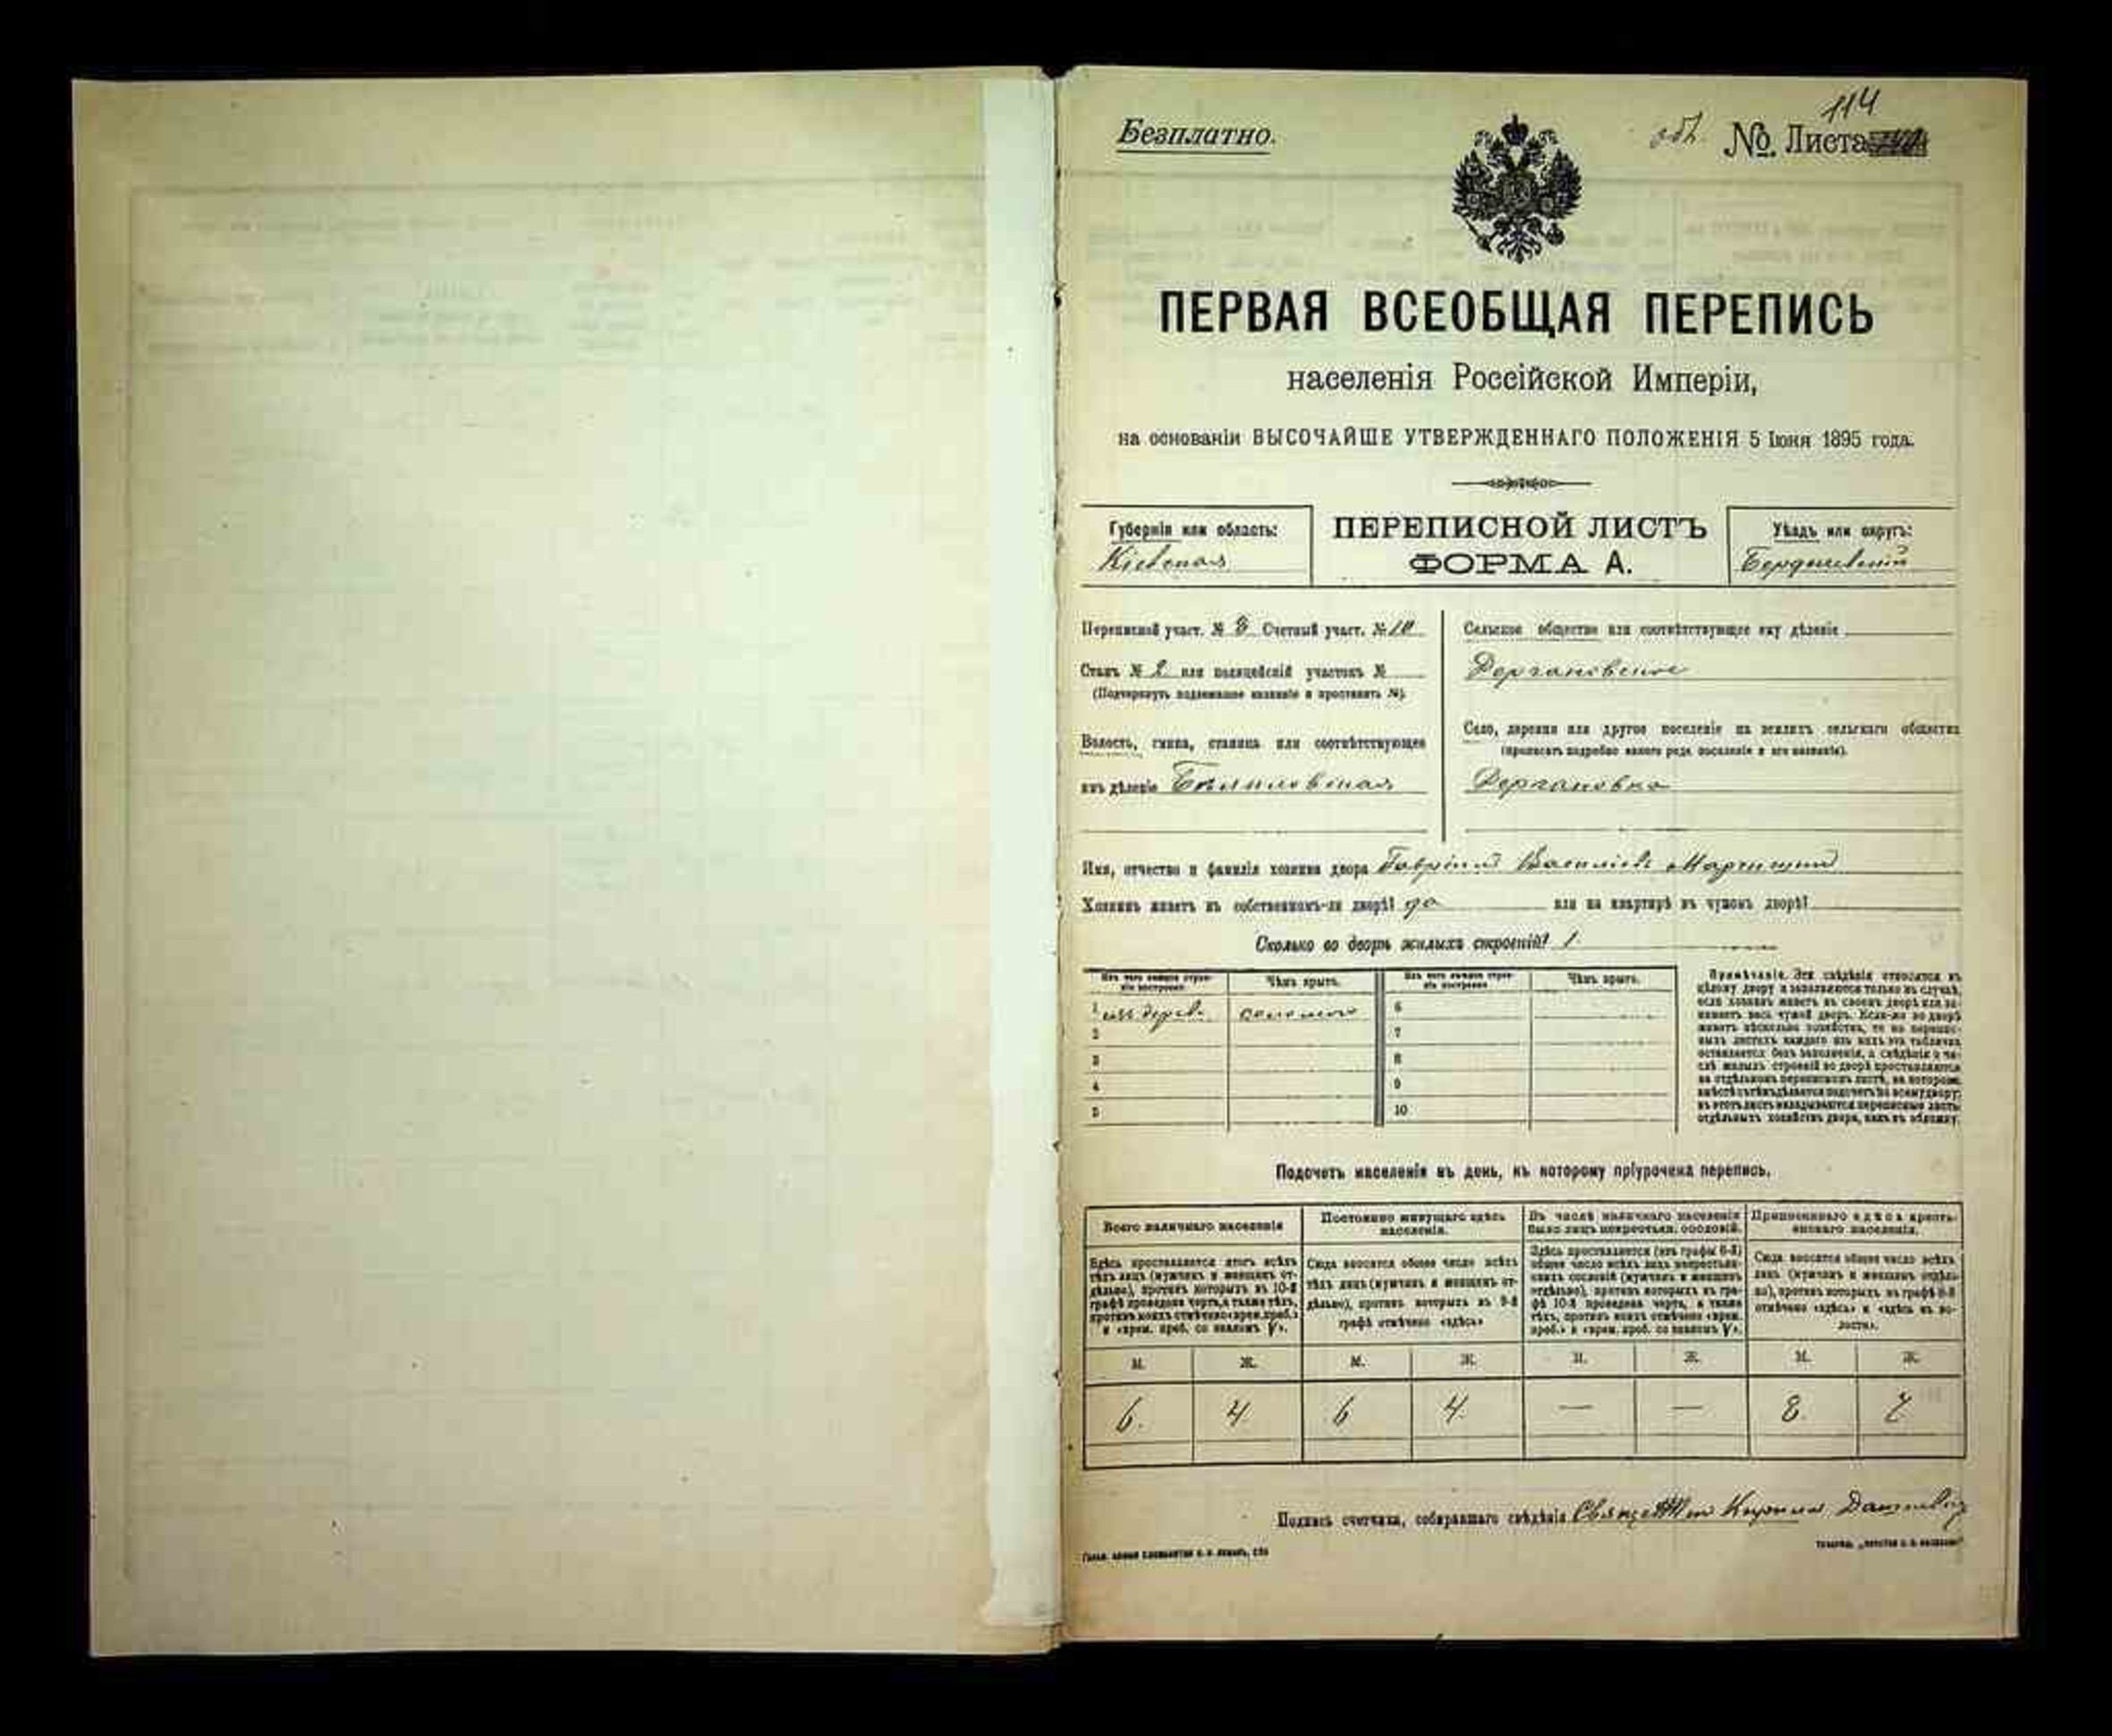 Безплатно.
№ Листа 114
ПЕРВАЯ ВСЕОБЩАЯ ПЕРЕПИСЬ
населенія Россійской Имперіи,
на основаніи ВЫСОЧАЙШЕ УТВЕРЖДЕННАГО ПОЛОЖЕНІЯ 5 Іюня 1895 года.
Губернія или область:
Кіевская
ПЕРЕПИСНОЙ ЛИСТЪ
ФОРМА А.
Уѣздъ или округъ:
Бердичевскій
Переписной участ. № 3 Счетный участ. № 10
Станъ № 2 или полицейскій участокъ №
(Подчеркнуть подлежащее названіе и проставить №).
Волость, гмина, станица или соотвѣтствующее
имъ дѣленіе Бѣлиловская
Сельское общество или соотвѣтствующее ему дѣленіе
Дергановское
Село, деревня или другое поселеніе на земляхъ сельскаго общества
(прописать подробно какого рода поселеніе и его названіе).
Дергановка
Имя, отчество и фамилія хозяина двора Гавріилъ Василіевъ
Хозяинъ живетъ въ собственномъ-ли дворѣ? да или на квартирѣ въ чужомъ дворѣ?
Сколько во дворѣ жилыхъ строеній? 1
Изъ чего каждое строеніе построено
Чѣмъ крыто.
Изъ чего каждое строеніе построено
Чѣмъ крыто.
1 изъ дерев. соломою 6
2 7
3 8
4 9
5 10
Примѣчаніе. Эти свѣдѣнія относятся къ
цѣлому двору и заполняются только въ случаѣ,
если хозяинъ живетъ въ своемъ дворѣ или за-
нимаетъ весь чужой дворъ. Если-же во дворѣ
живетъ нѣсколько хозяйствъ, то на перепис-
ныхъ листахъ каждаго изъ нихъ эта табличка
оставляется безъ заполненія, а свѣдѣнія о чи-
слѣ жилыхъ строеній во дворѣ проставляются
на отдѣльномъ переписномъ листѣ, на которомъ
вмѣстѣ съ тѣмъ дѣлается подсчетъ по всему двору;
въ этотъ листъ вкладываются переписные листы
отдѣльныхъ хозяйствъ двора, какъ въ обложку.
Подсчетъ населенія въ день, къ которому пріурочена перепись.
Всего наличнаго населенія
Здѣсь проставляется итогъ всѣхъ
тѣхъ лицъ (мужчинъ и женщинъ от-
дѣльно), противъ которыхъ въ 10-й
графѣ проведена черта, а также тѣхъ,
противъ коихъ отмѣчено «врем. преб.»
и «врем. преб. со знакомъ V».
Постоянно живущаго здѣсь
населенія.
Сюда вносится общее число всѣхъ
тѣхъ лицъ (мужчинъ и женщинъ от-
дѣльно), противъ которыхъ въ 9-й
графѣ отмѣчено «здѣсь»
Въ числѣ наличнаго населенія
было лицъ некрестьян. сословій.
Здѣсь проставляется (изъ графы 6-й)
общее число всѣхъ лицъ некрестьян-
скихъ сословій (мужчинъ и женщинъ
отдѣльно), противъ которыхъ въ гра-
фѣ 10-й проведена черта, а также
тѣхъ, противъ коихъ отмѣчено «врем.
преб.» и «врем. преб. со знакомъ V».
Приписаннаго здѣсь кресть-
янскаго населенія.
Сюда вносится общее число всѣхъ
лицъ (мужчинъ и женщинъ отдѣль-
но), противъ которыхъ въ графѣ 8-й
отмѣчено «здѣсь» и «здѣсь въ во-
лости».
М. Ж. М. Ж. М. Ж. М. Ж.
6. 4 6 4 — — 8
Подпись счетчика, собиравшаго свѣдѣнія Священникъ Кирилъ